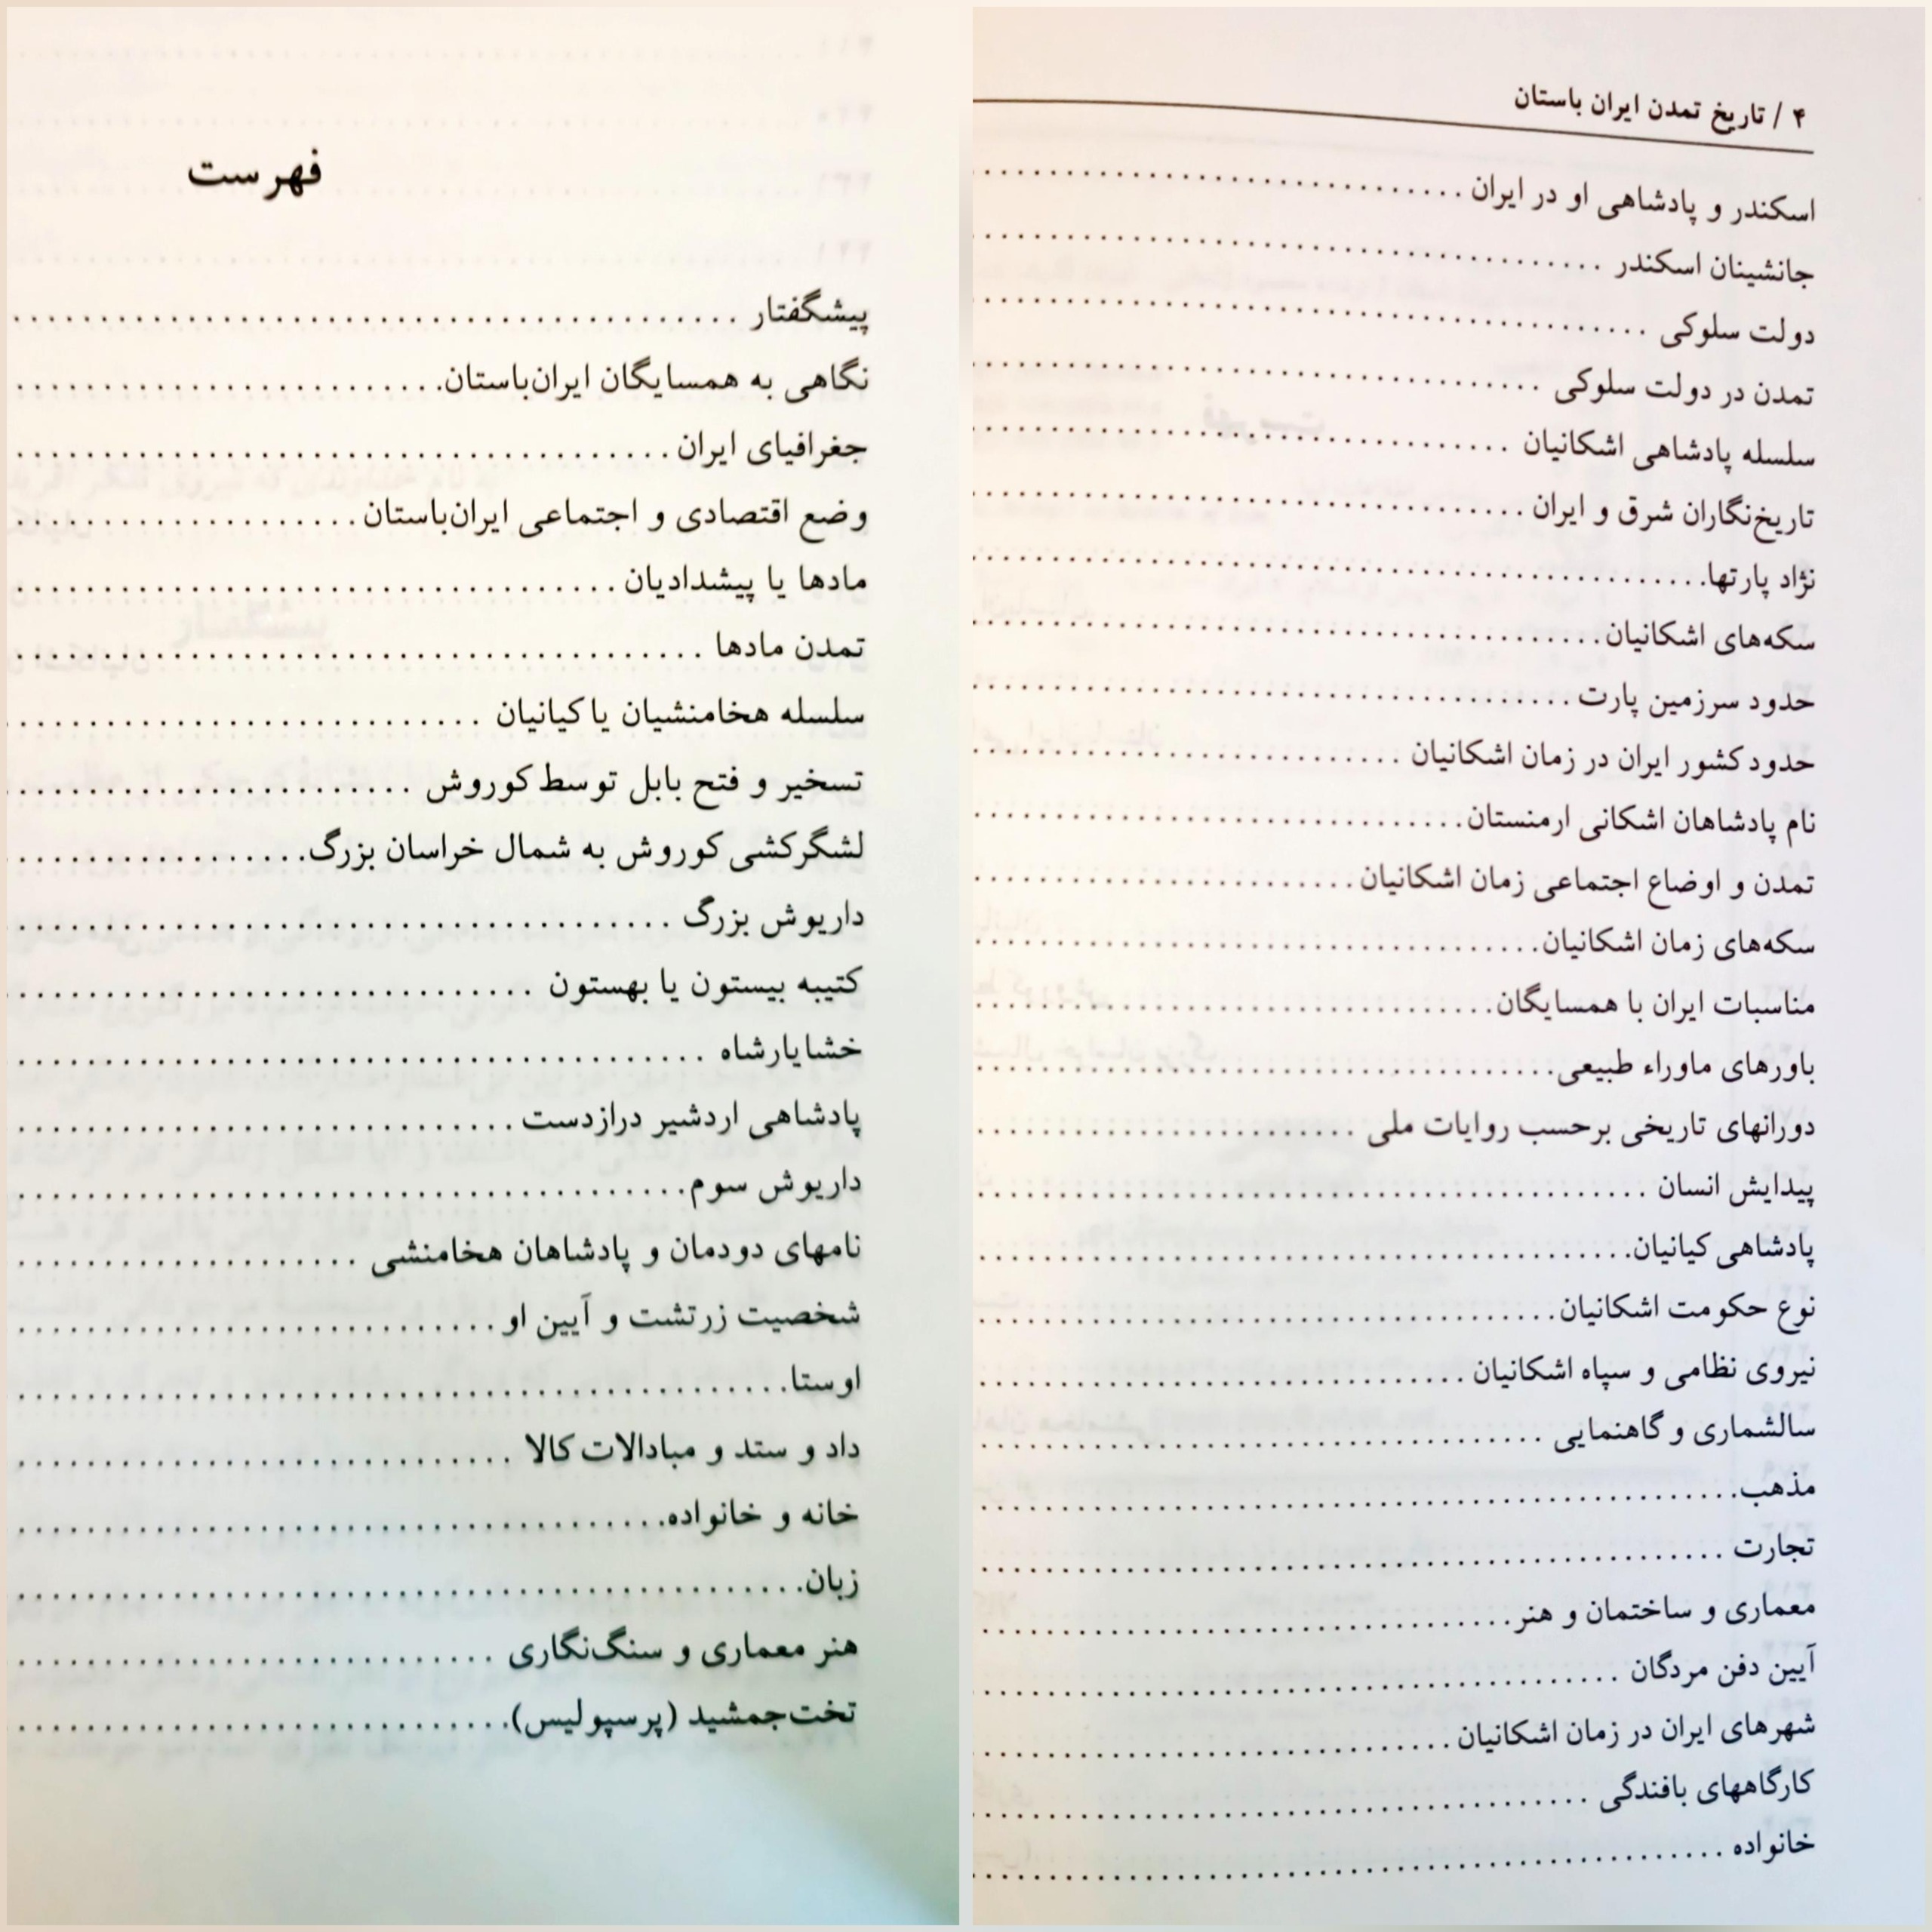 فهرست
پیشگفتار
نگاهی به همسایگان ایران‌باستان
جغرافیای ایران
وضع اقتصادی و اجتماعی ایران‌باستان
مادها یا پیشدادیان
تمدن مادها
سلسله هخامنشیان یا کیانیان
تسخیر و فتح بابل توسط کوروش
لشگرکشی کوروش به شمال خراسان بزرگ
داریوش بزرگ
کتیبه بیستون یا بهستون
خشایارشاه
پادشاهی اردشیر درازدست
داریوش سوم
نامهای دودمان و پادشاهان هخامنشی
شخصیت زرتشت و آیین او
اوستا
داد و ستد و مبادالات کالا
خانه و خانواده
زبان
هنر معماری و سنگ‌نگاری
تخت‌جمشید (پرسپولیس)
۴ / تاریخ تمدن ایران باستان
اسکندر و پادشاهی او در ایران
جانشینان اسکندر
دولت سلوکی
تمدن در دولت سلوکی
سلسله پادشاهی اشکانیان
تاریخ‌نگاران شرق و ایران
نژاد پارتها
سکه‌های اشکانیان
حدود سرزمین پارت
حدود کشور ایران در زمان اشکانیان
نام پادشاهان اشکانی ارمنستان
تمدن و اوضاع اجتماعی زمان اشکانیان
سکه‌های زمان اشکانیان
مناسبات ایران با همسایگان
باورهای ماوراء طبیعی
دورانهای تاریخی برحسب روایات ملی
پیدایش انسان
پادشاهی کیانیان
نوع حکومت اشکانیان
نیروی نظامی و سپاه اشکانیان
سالشماری و گاهنمایی
مذهب
تجارت
معماری و ساختمان و هنر
آیین دفن مردگان
شهرهای ایران در زمان اشکانیان
کارگاههای بافندگی
خانواده